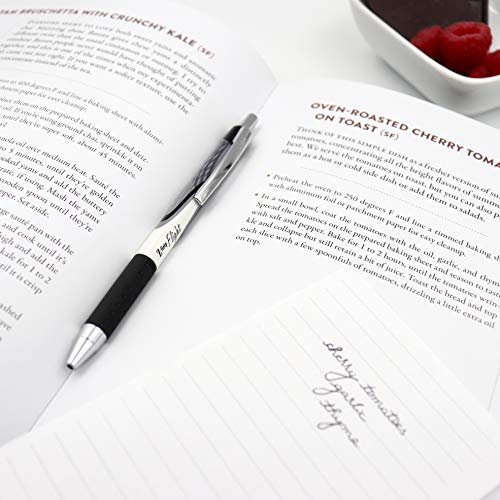 AM BRUSCHETTA WITH CRUNCHY KALE (SF)
instead of the tea.
400 degrees F and line a baking sheet with alumi-
paper for easy cleanup.
them on the prepared baking sheet and driz-
oil. If you're using ground chai, sprinkle it on
until they're super soft, about 45 minutes.
nola oil over medium heat. Sauté the
5 minutes, until they're golden
ooked yams and add the buttery
if using. Mash the yams
wooden spoon until they're
pper. Set aside.
me sauté pan with the
and cook until it's
high and add the
kale for 1 to 2
til it is crisp
ashed
Zen Flight
OVEN-ROASTED CHERRY TOMA
ON TOAST (SF)
Think of this simple dish as a fresher version of su
tomatoes, concentrating all the bright flavors of summ
best. We serve the tomatoes on toast, but you can also
them as a hot or cold side dish or add them to salads.
• Preheat the oven to 250 degrees F and line a rimmed baking sheet
with aluminum foil or parchment paper for easy cleanup.
• In a small bowl, coat the tomatoes with the oil, garlic, and thyme.
Spread the tomatoes on the prepared baking sheet and season
with salt and pepper. Bake for 1 hour or until the tomatoes wrin-
kle and collapse but still retain a bit of juice. Toast the bread and top
each slice with a few spoonfuls of tomatoes, drizzling a little extra oil
on top.
cherry tomatoes
garlic
thyme